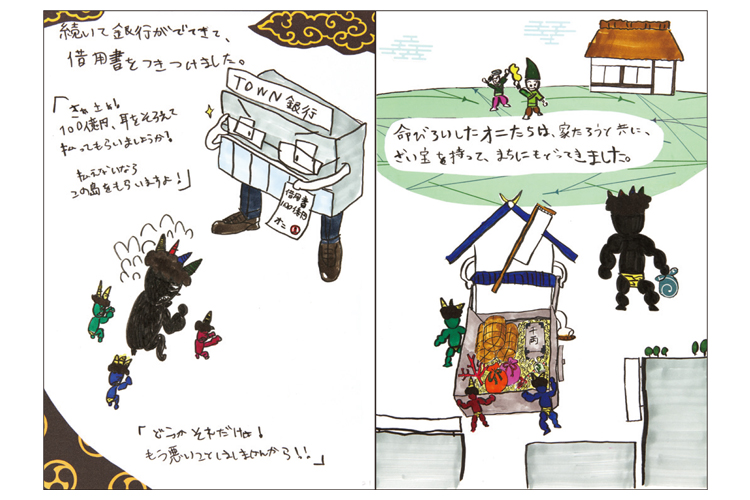 続いて銀行がでてきて、
借用書をつきつけました。
TOWN銀行
「さぁさぁ!
100億円、耳をそろえて
払ってもらいましょうか!
払えないなら
この島をもらいますよ!」
借用書
100億円
オニ
「どうか それだけは!
もう悪いことしませんから!!」
命びろいしたオニたちは、家たろうと共に、
ざい宝を持って、まちにもどってきました。
千両